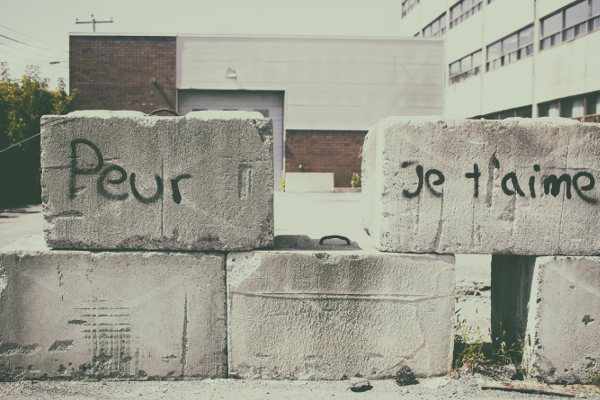 Peur
Je t'aime